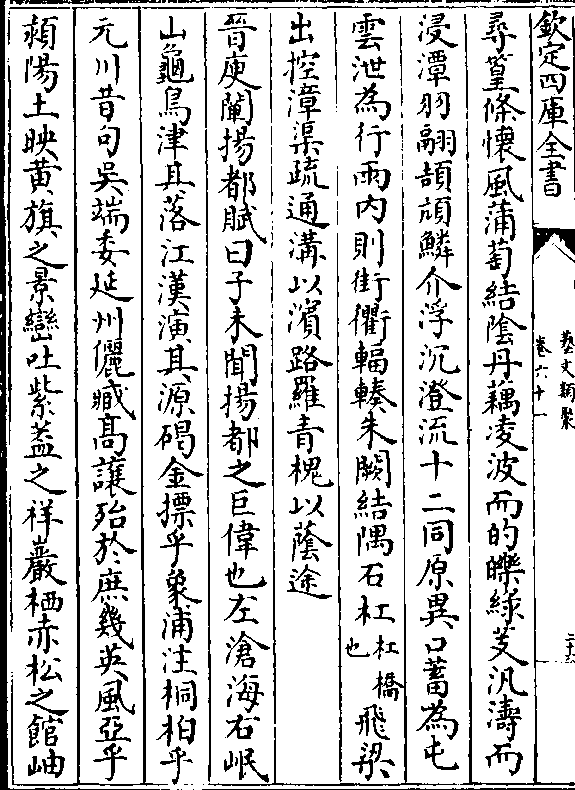 欽定四庫全書
藝文類聚
卷六十一
尋篁條懷風蒲萄結陰丹藕凌波而的皪綠芰汎濤而
浸潭羽翮頡頏鱗介浮沉澄流十二同原異口蓄為屯
雲泄為行雨内則街衢輻輳朱闕結隅石杠杠橋也飛梁
出控漳渠疏通溝以濱路羅青槐以蔭途
晉庾闡揚都賦曰子未聞揚都之巨偉也左滄海右岷
山龜鳥津其落江漢演其源碣金摽乎象浦注桐柏乎
元川昔句吳端委延州儷臧髙讓殆於庶幾英風亞乎
潁陽土映黄旗之景巒吐紫葢之祥巖栖赤松之館岫